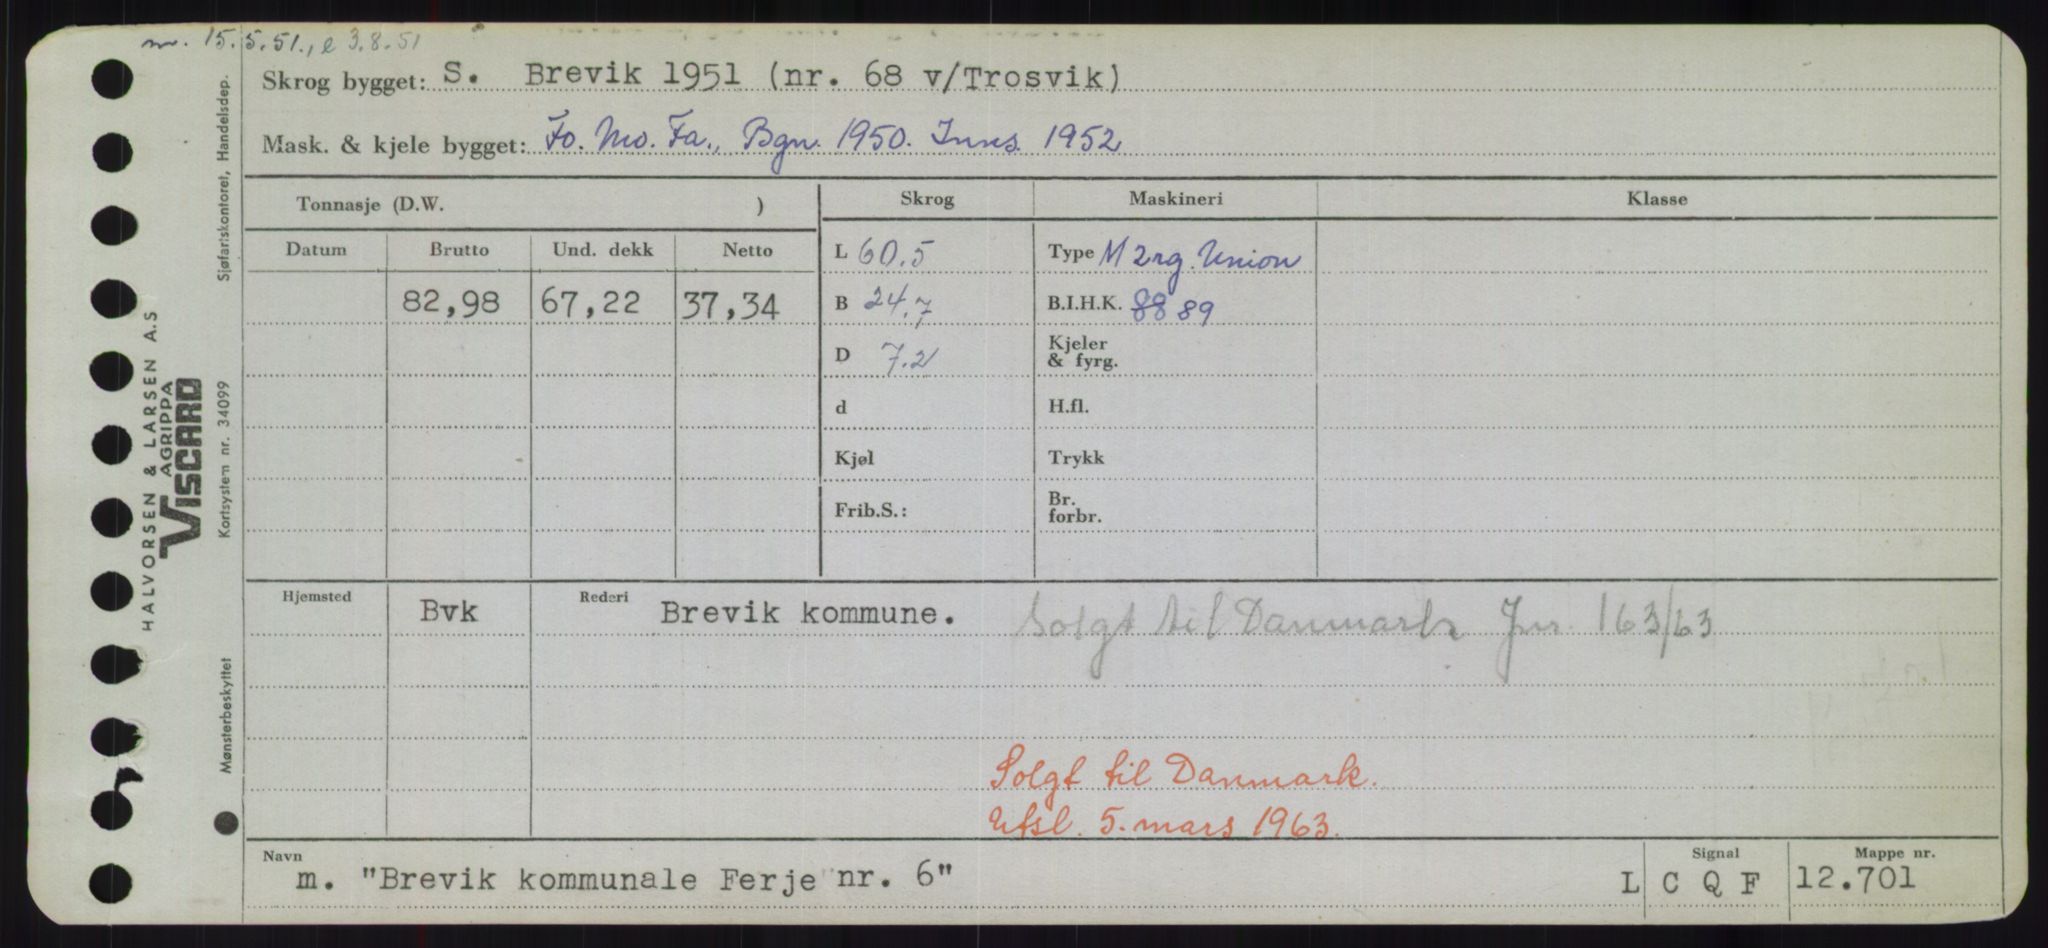 m. 15.5.51., e 3.8.51
Skrog bygget: S. Brevik 1951 (nr. 68 v/Trosvik)
Mask. & kjele bygget: Fo. Mo. Fa., Bgn. 1950. Inns. 1952
Tonnasje (D.W. )
Skrog Maskineri Klasse
Datum Brutto Und. dekk Netto
L 60.5 Type M 2rg. Union
82,98 67,22 37,34 B 24.7 B.I.H.K. 88 89
D 7.2 Kjeler
& fyrg.
d H.fl.
Kjøl Trykk
Frib.S.: Br.
forbr.
Hjemsted Bvk Rederi Brevik kommune. Solgt til Danmark Jnr. 163/63
Solgt til Danmark.
Utsl. 5. mars 1963.
Navn Signal Mappe nr.
m. "Brevik kommunale Ferje nr. 6" L C Q F 12.701
HALVORSEN & LARSEN A.S
AGRIPPA
VISCARD
Sjøfartskontoret, Handelsdep.
Kortsystem nr. 34099
Mønsterbeskyttet